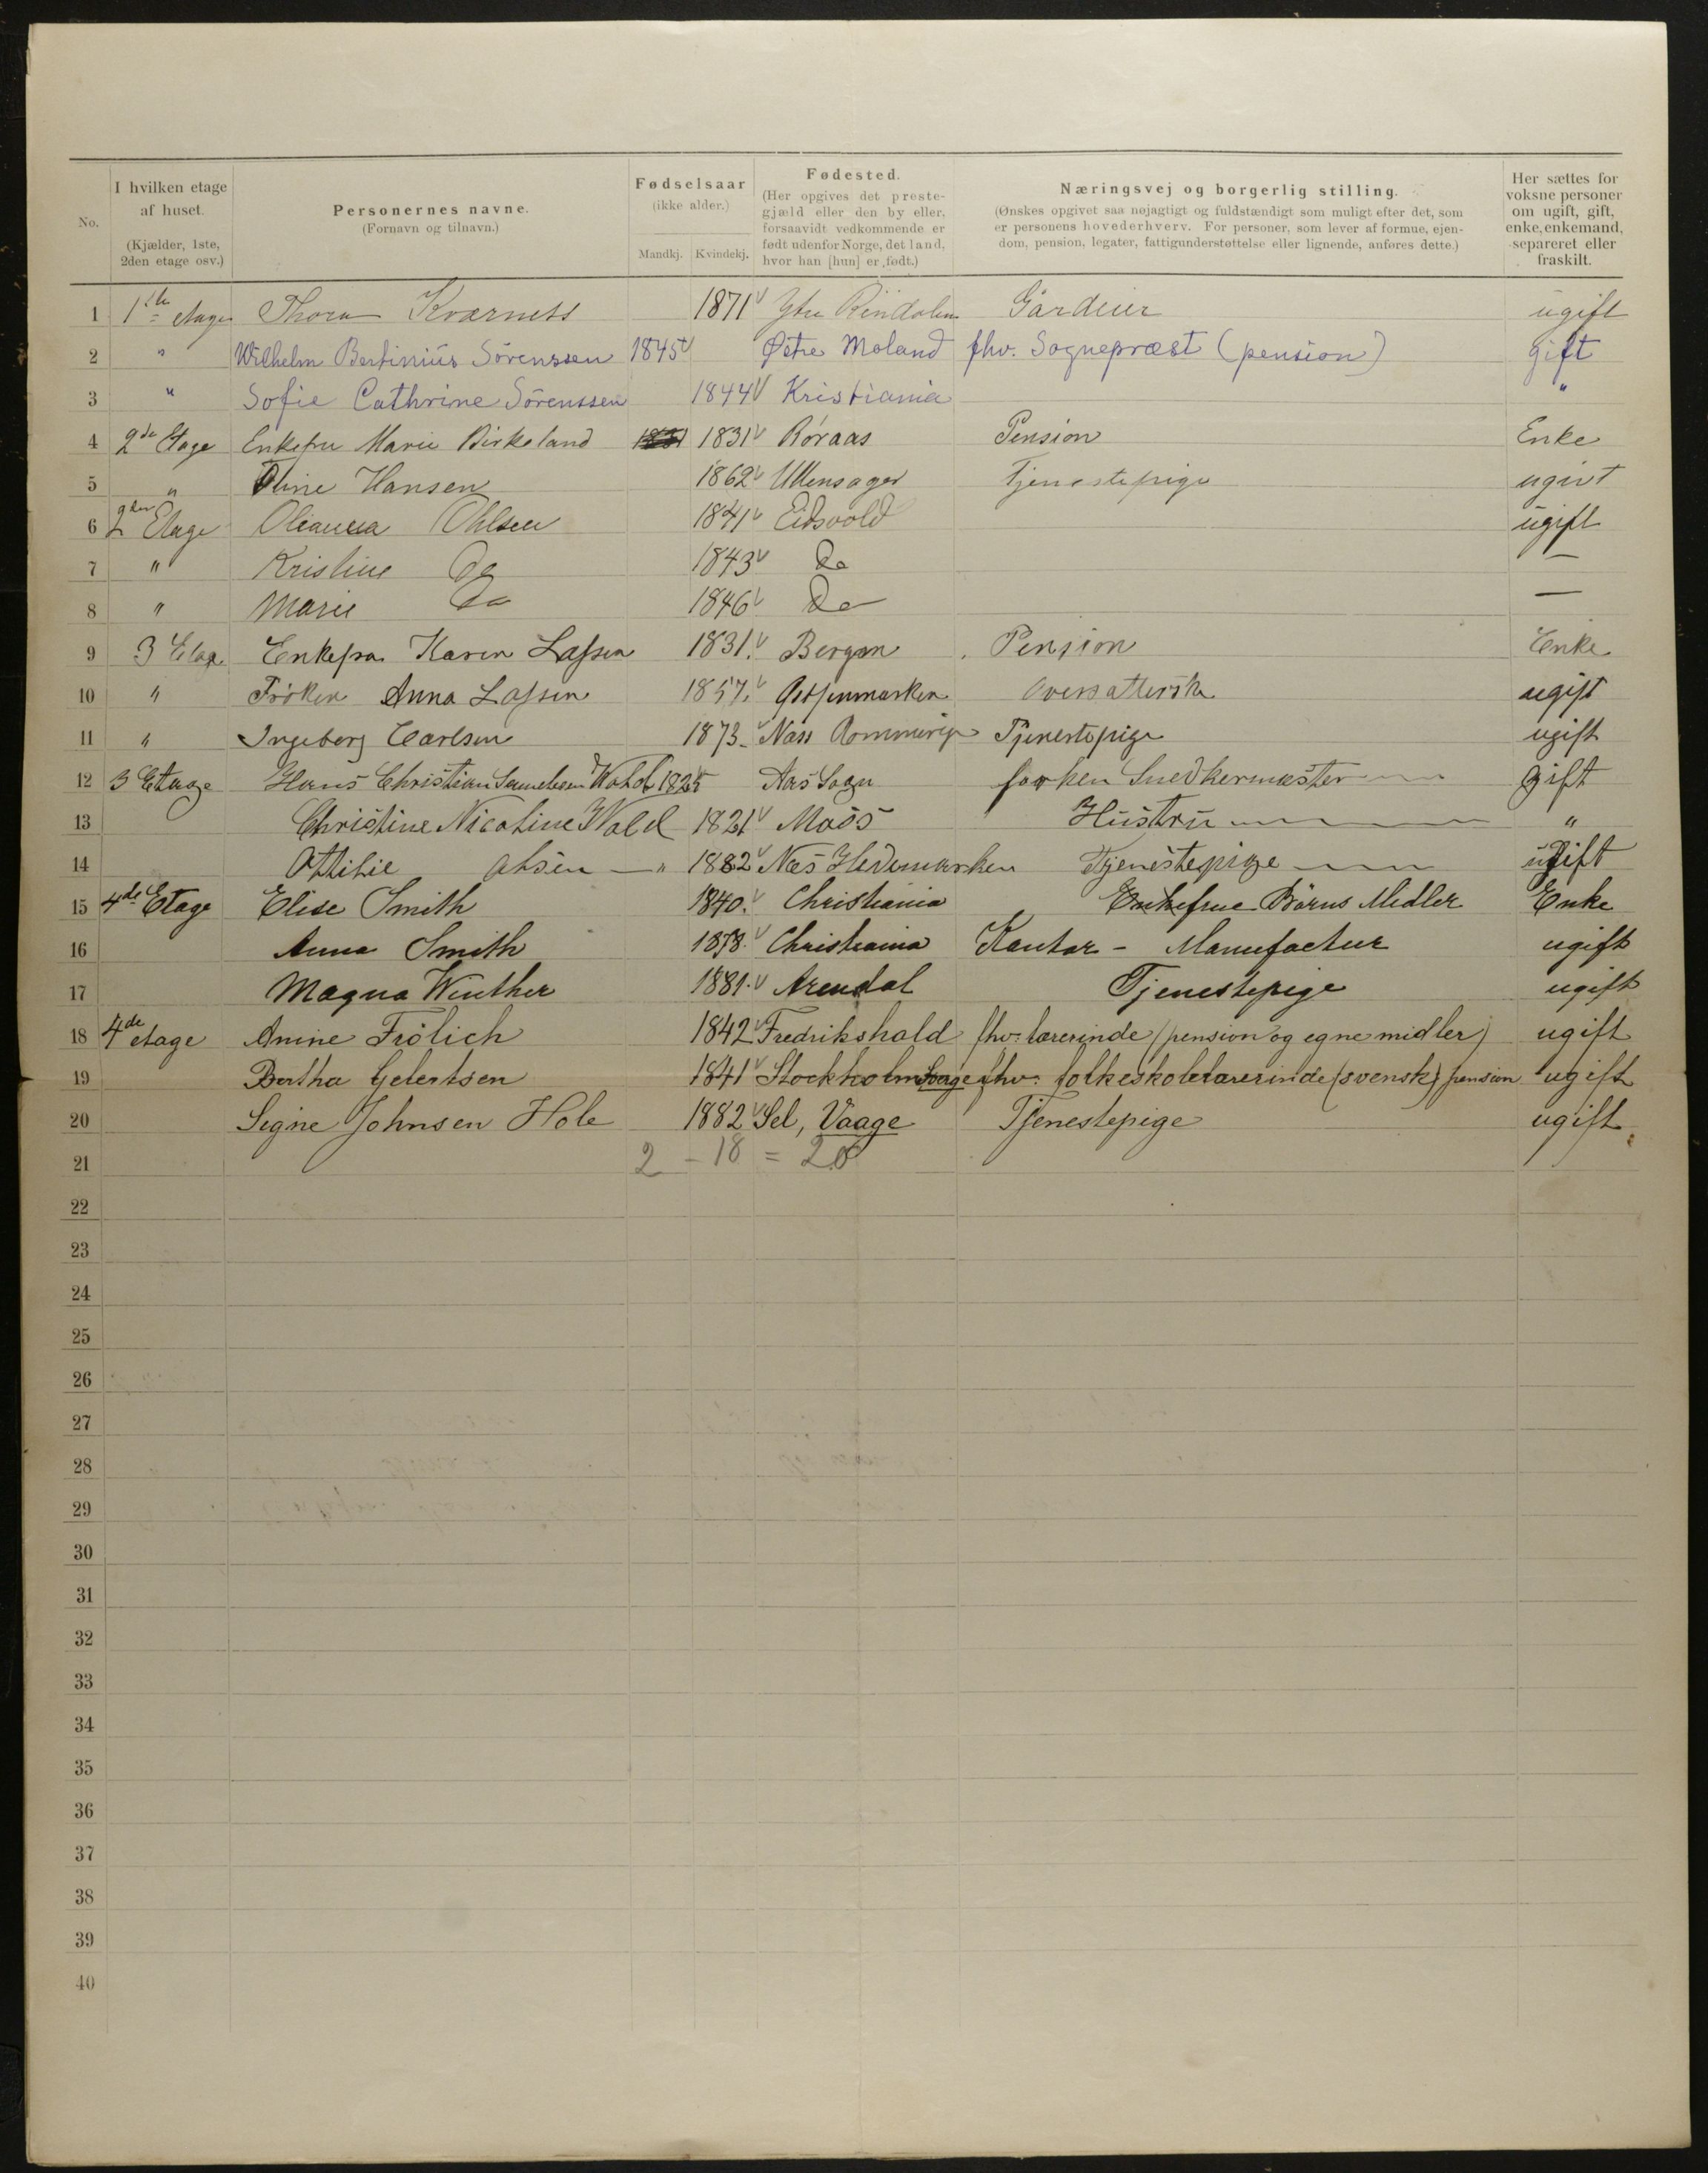 No.
I hvilken etage af huset. (Kjælder, 1ste, 2den etage osv.)
Personernes navne. (Fornavn og tilnavn.)
Fødselsaar (ikke alder.) Mandkj. Kvindekj.
Fødested. (Her opgives det prestegjæld eller den by eller, forsaavidt vedkommende er født udenfor Norge, det land, hvor han [hun] er født.)
Næringsvej og borgerlig stilling. (Ønskes opgivet saa nøjagtigt og fuldstændigt som muligt efter det, som er personens hovederhverv. For personer, som lever af formue, ejendom, pension, legater, fattigunderstøttelse eller lignende, anføres dette.)
Her sættes for voksne personer om ugift, gift, enke, enkemand, separeret eller fraskilt.
1 1ste etage Thora Kværness 1871 Ytre Rindalen Gårdeier ugift
2 " Wilhelm Bertinius Sörenssen 1845 Østre Moland fhv. Sogneprest (pension) gift
3 " Sofie Cathrine Sörenssen 1844 Kristiania "
4 2de Etage Enkefru Marie Birkeland 1831 1831 Røraas Pension Enke
5 " Oline Hansen 1862 Ullensager Tjenestepige ugivt
6 2den Etage Olianna Ohlsen 1841 Eidsvold ugift
7 " Kristine Do 1843 Do —
8 " Marie Do 1846 Do —
9 3 Etage Enkefru Karen Lassen 1831. Bergen Pension Enke
10 " Fröken Anna Lassen 1857. Østfinmarken Oversætterske ugift
11 " Ingeborg Carlsen 1873. Næss Rommerige Tjenestepige ugift
12 3 Etage Hans Christian Wold 1825 Aas Sogn forhen Snedkermester gift
13 Christine Nicoline Wold 1821 Moss Hustru "
14 Ottilie Olsen — " 1882 Næs Hedemarken Tjenestepige ugift
15 4de Etage Elise Smith 1840. Christiania Enkefrue Börns Midler Enke
16 Anna Smith 1878. Christiania Kontor - Manufactur ugift
17 Magna Winther 1881. Arendal Tjenestepige ugift
18 4de etage Anine Frölich 1842 Fredrikshald fhv. lærerinde (pension og egne midler) ugift
19 Bertha Gelertsen 1841 Stockholm Sverge fhv. folkeskolelærerinde (svensk) pension ugift
20 Signe Johnsen Hole 1882 Sel, Vaage Tjenestepige ugift.
21 2 - 18 = 20
22
23
24
25
26
27
28
29
30
31
32
33
34
35
36
37
38
39
40